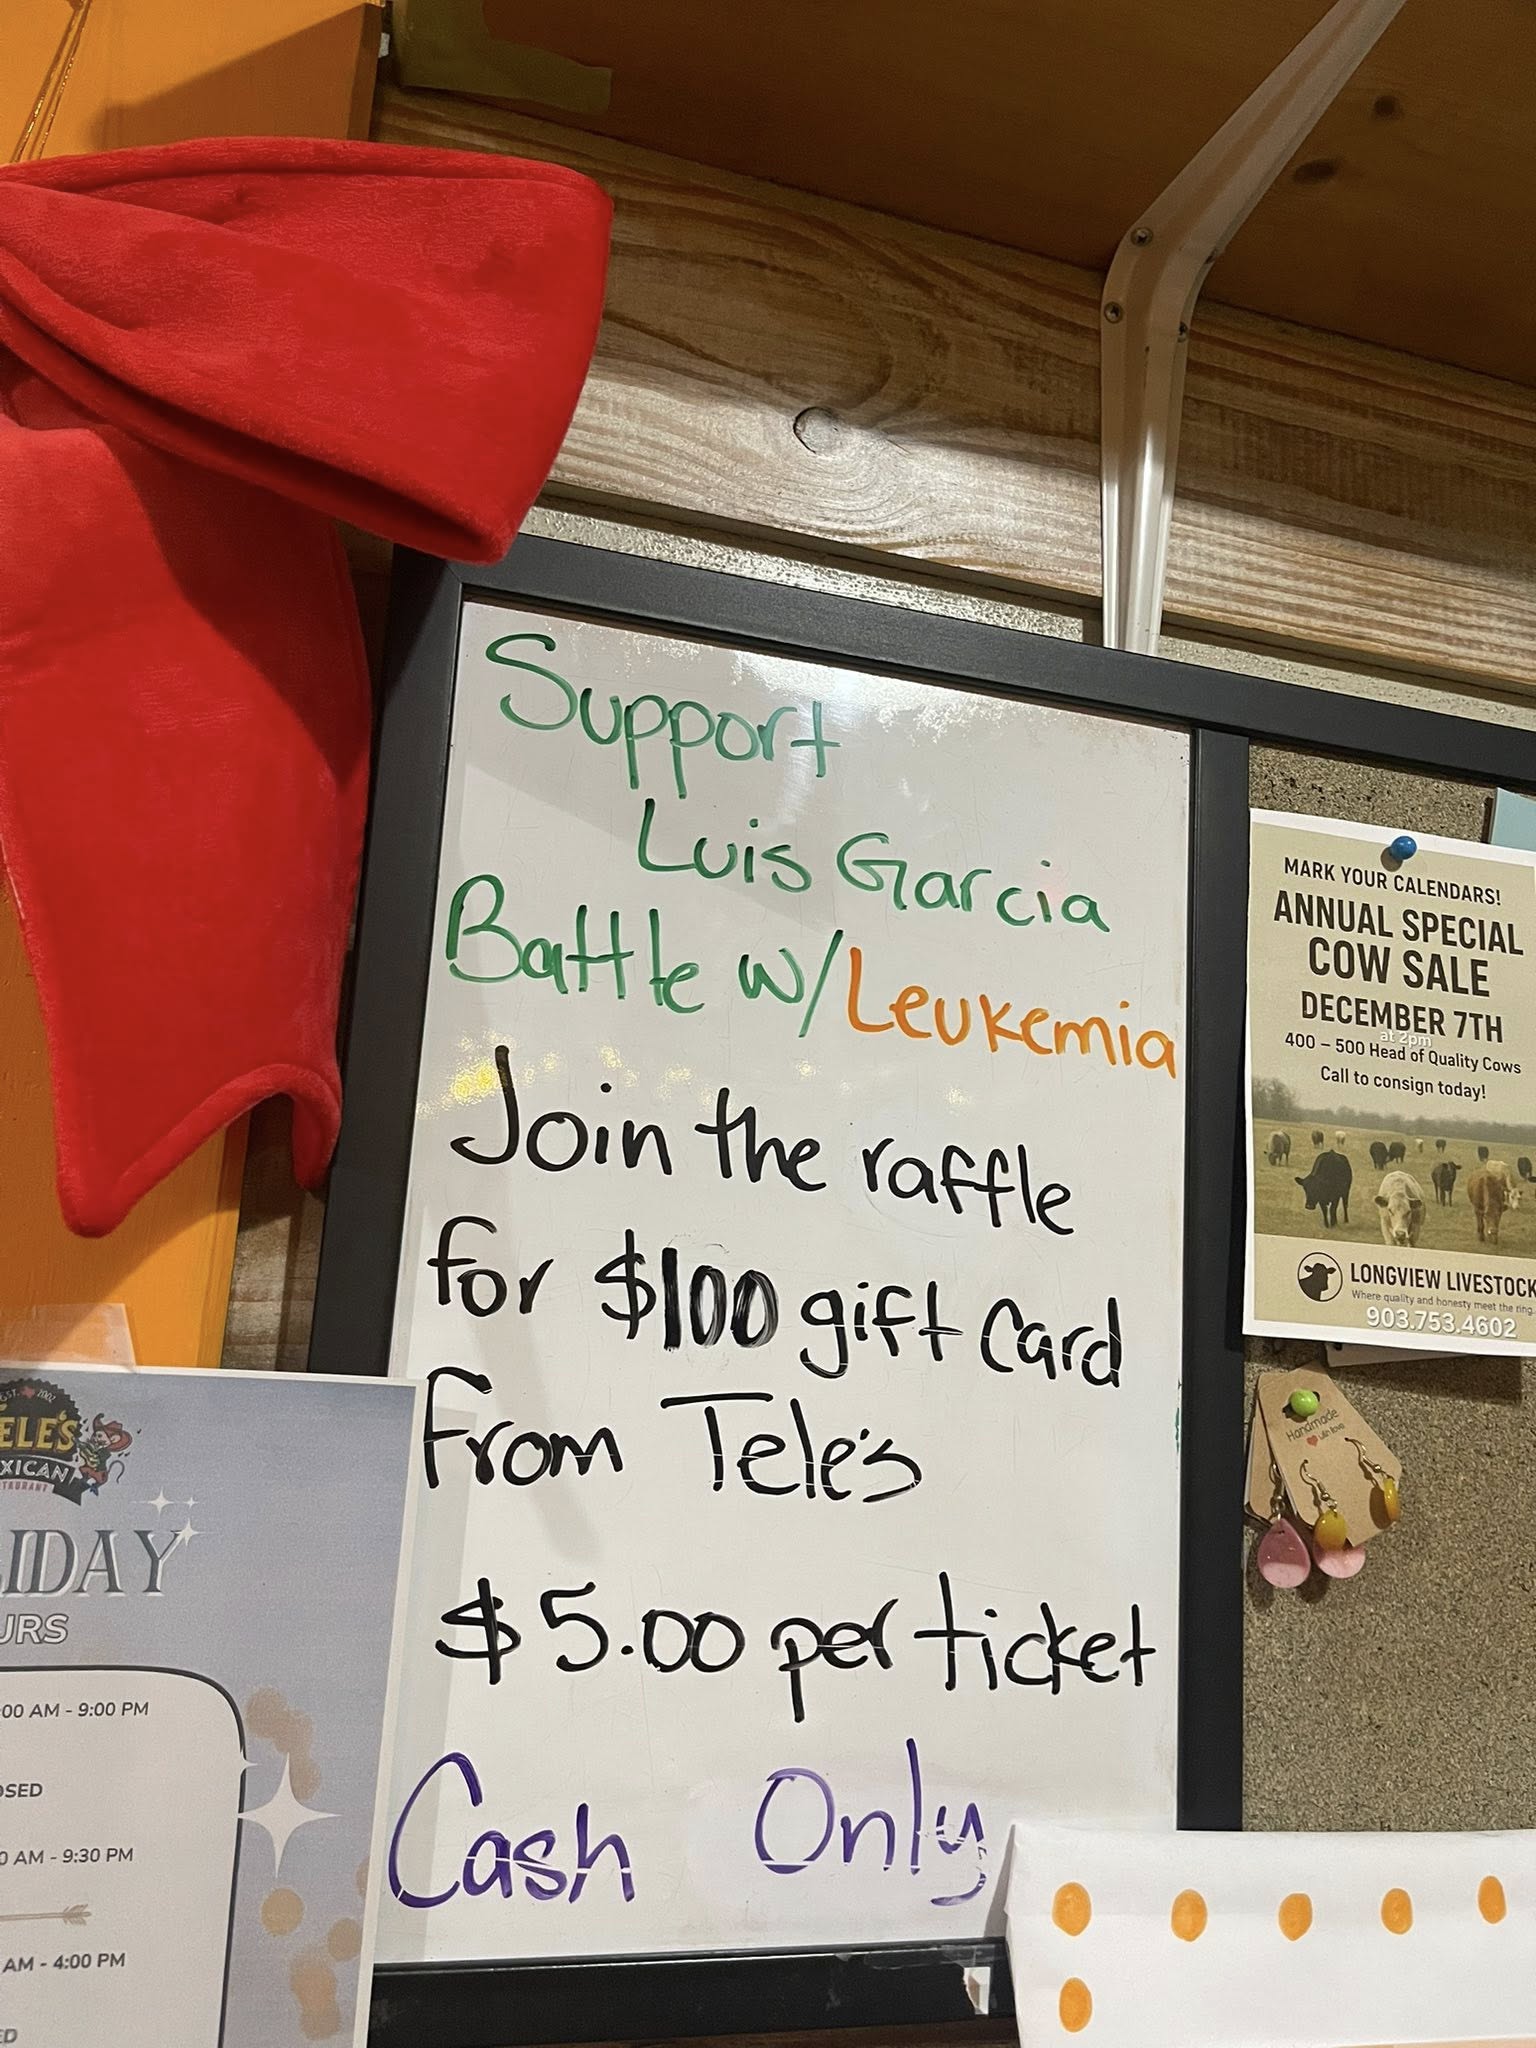 Support
Luis Garcia
Battle w/Leukemia
Join the raffle
for $100 gift card
from Tele's
$5.00 per ticket
Cash Only
MARK YOUR CALENDARS!
ANNUAL SPECIAL
COW SALE
DECEMBER 7TH
at 2pm
400 – 500 Head of Quality Cows
Call to consign today!
LONGVIEW LIVESTOCK
Where quality and honesty meet the ring.
903.753.4602
Handmade
with love
EST. 2002
ELE'S
XICAN
TAURANT
LIDAY
URS
:00 AM - 9:00 PM
OSED
0 AM - 9:30 PM
AM - 4:00 PM
ED